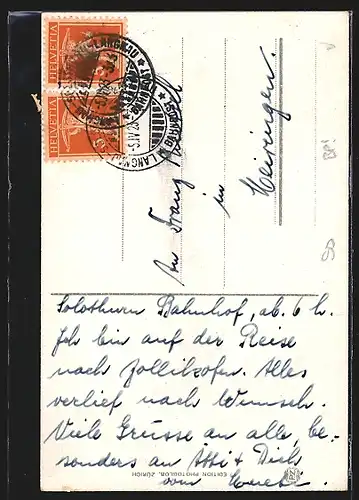 HELVETIA
HELVETIA
LANGNAU
BP!
50
An Franz
in
Meiringen.
Solothurn Bahnhof, ab. 6 h.
Ich bin auf der Reise
nach Zollikofen. Alles
verlief nach Wunsch.
Viele Grüsse an alle, be-
sonders an Atti & Dich
vom
EDITION PHOTOGLOB, ZÜRICH